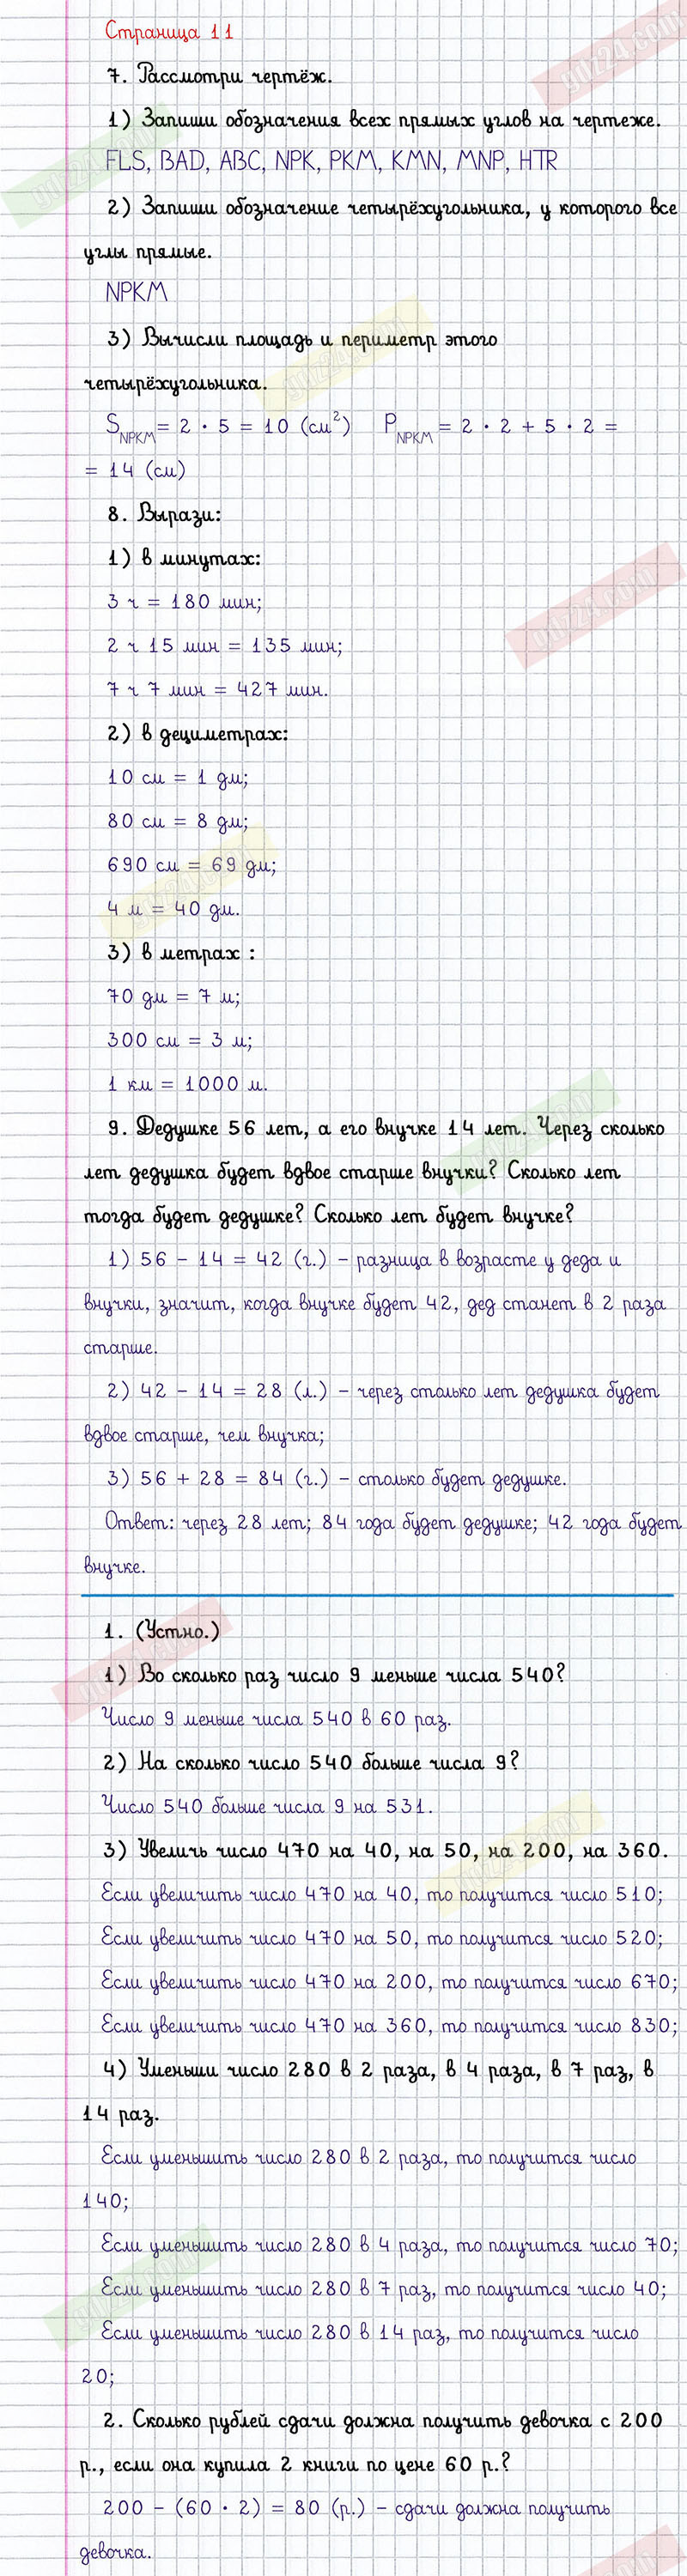 Страница 11
7. Рассмотри чертёж.
1) Запиши обозначения всех прямых углов на чертеже.
FLS, BAD, ABC, NPK, PKM, KMN, MNP, HTR
2) Запиши обозначение четырёхугольника, у которого все
углы прямые.
NPKM
3) Вычисли площадь и периметр этого
четырёхугольника.
S NPKM = 2 · 5 = 10 (см²) P NPKM = 2 · 2 + 5 · 2 =
= 14 (см)
8. Вырази:
1) в минутах:
3 ч = 180 мин;
2 ч 15 мин = 135 мин;
7 ч 7 мин = 427 мин.
2) в дециметрах:
10 см = 1 дм;
80 см = 8 дм;
690 см = 69 дм;
4 м = 40 дм.
3) в метрах :
70 дм = 7 м;
300 см = 3 м;
1 км = 1000 м.
9. Дедушке 56 лет, а его внучке 14 лет. Через сколько
лет дедушка будет вдвое старше внучки? Сколько лет
тогда будет дедушке? Сколько лет будет внучке?
1) 56 – 14 = 42 (г.) – разница в возрасте у деда и
внучки, значит, когда внучке будет 42, дед станет в 2 раза
старше.
2) 42 – 14 = 28 (л.) – через столько лет дедушка будет
вдвое старше, чем внучка;
3) 56 + 28 = 84 (г.) – столько будет дедушке.
Ответ: через 28 лет; 84 года будет дедушке; 42 года будет
внучке.
1. (Устно.)
1) Во сколько раз число 9 меньше числа 540?
Число 9 меньше числа 540 в 60 раз.
2) На сколько число 540 больше числа 9?
Число 540 больше числа 9 на 531.
3) Увеличь число 470 на 40, на 50, на 200, на 360.
Если увеличить число 470 на 40, то получится число 510;
Если увеличить число 470 на 50, то получится число 520;
Если увеличить число 470 на 200, то получится число 670;
Если увеличить число 470 на 360, то получится число 830;
4) Уменьши число 280 в 2 раза, в 4 раза, в 7 раз, в
14 раз.
Если уменьшить число 280 в 2 раза, то получится число
140;
Если уменьшить число 280 в 4 раза, то получится число 70;
Если уменьшить число 280 в 7 раз, то получится число 40;
Если уменьшить число 280 в 14 раз, то получится число
20;
2. Сколько рублей сдачи должна получить девочка с 200
р., если она купила 2 книги по цене 60 р.?
200 – (60 · 2) = 80 (р.) – сдачи должна получить
девочка.